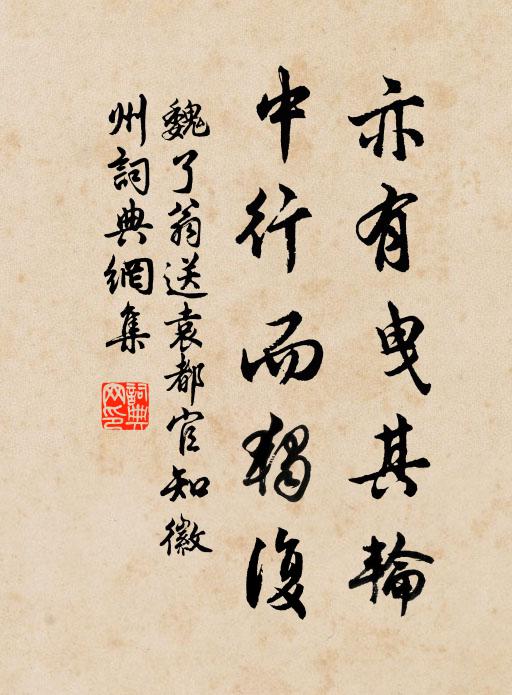 亦有曳其輪
中行而獨復
魏了翁送袁都官知徽
州詞典網集
詞典網印